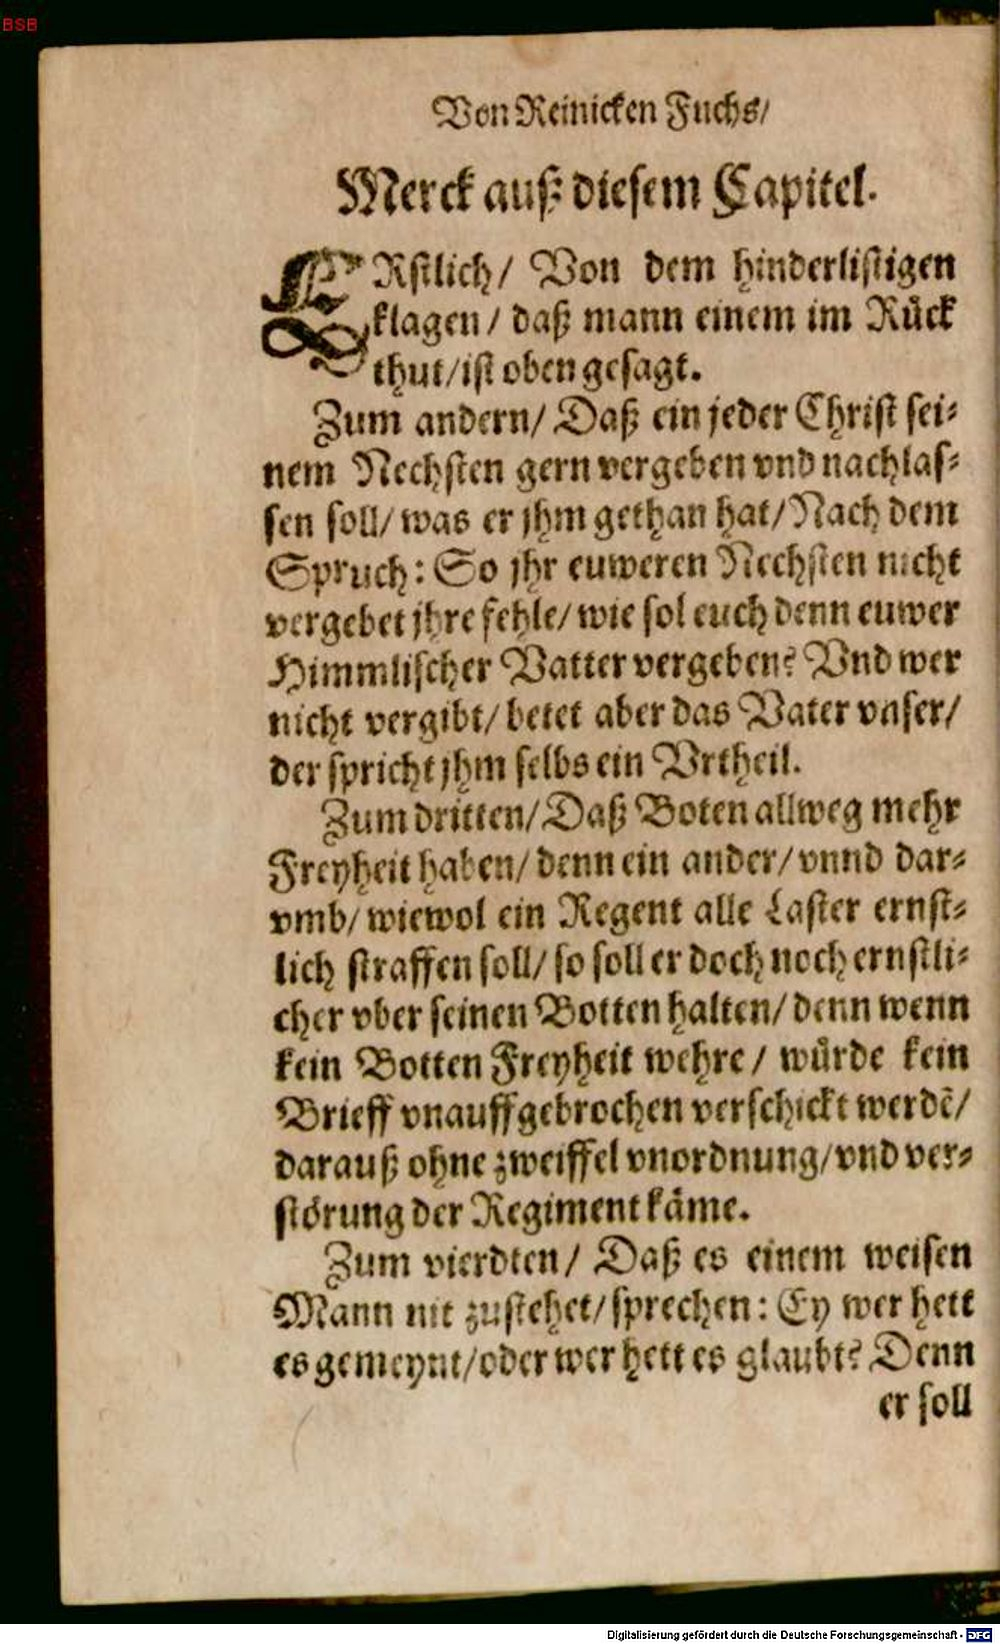 BSB
Von Reinicken Fuchs/
Merck auß diesem Capitel.
ERstlich/ Von dem hinderlistigen
klagen/ daß mann einem im Rück
thut/ist oben gesagt.
Zum andern/ Daß ein jeder Christ sei-
nem Nechsten gern vergeben vnd nachlas-
sen soll/ was er jhm gethan hat/ Nach dem
Spruch: So jhr euweren Nechsten nicht
vergebet jhre fehle/ wie sol euch denn euwer
Himmlischer Vatter vergeben? Vnd wer
nicht vergibt/ betet aber das Vater vnser/
der spricht jhm selbs ein Vrtheil.
Zum dritten/ Daß Boten allweg mehr
Freyheit haben/ denn ein ander/ vnnd dar-
vmb/ wiewol ein Regent alle Laster ernst-
lich straffen soll/ so soll er doch noch ernstli-
cher vber seinen Botten halten/ denn wenn
kein Botten Freyheit wehre/ würde kein
Brieff vnauffgebrochen verschickt werdē/
darauß ohne zweiffel vnordnung/ vnd ver-
störung der Regiment käme.
Zum vierdten/ Daß es einem weisen
Mann nit zustehet/ sprechen: Ey wer hett
es gemeynt/oder wer hett es glaubt? Denn
er soll
Digitalisierung gefördert durch die Deutsche Forschungsgemeinschaft - DFG